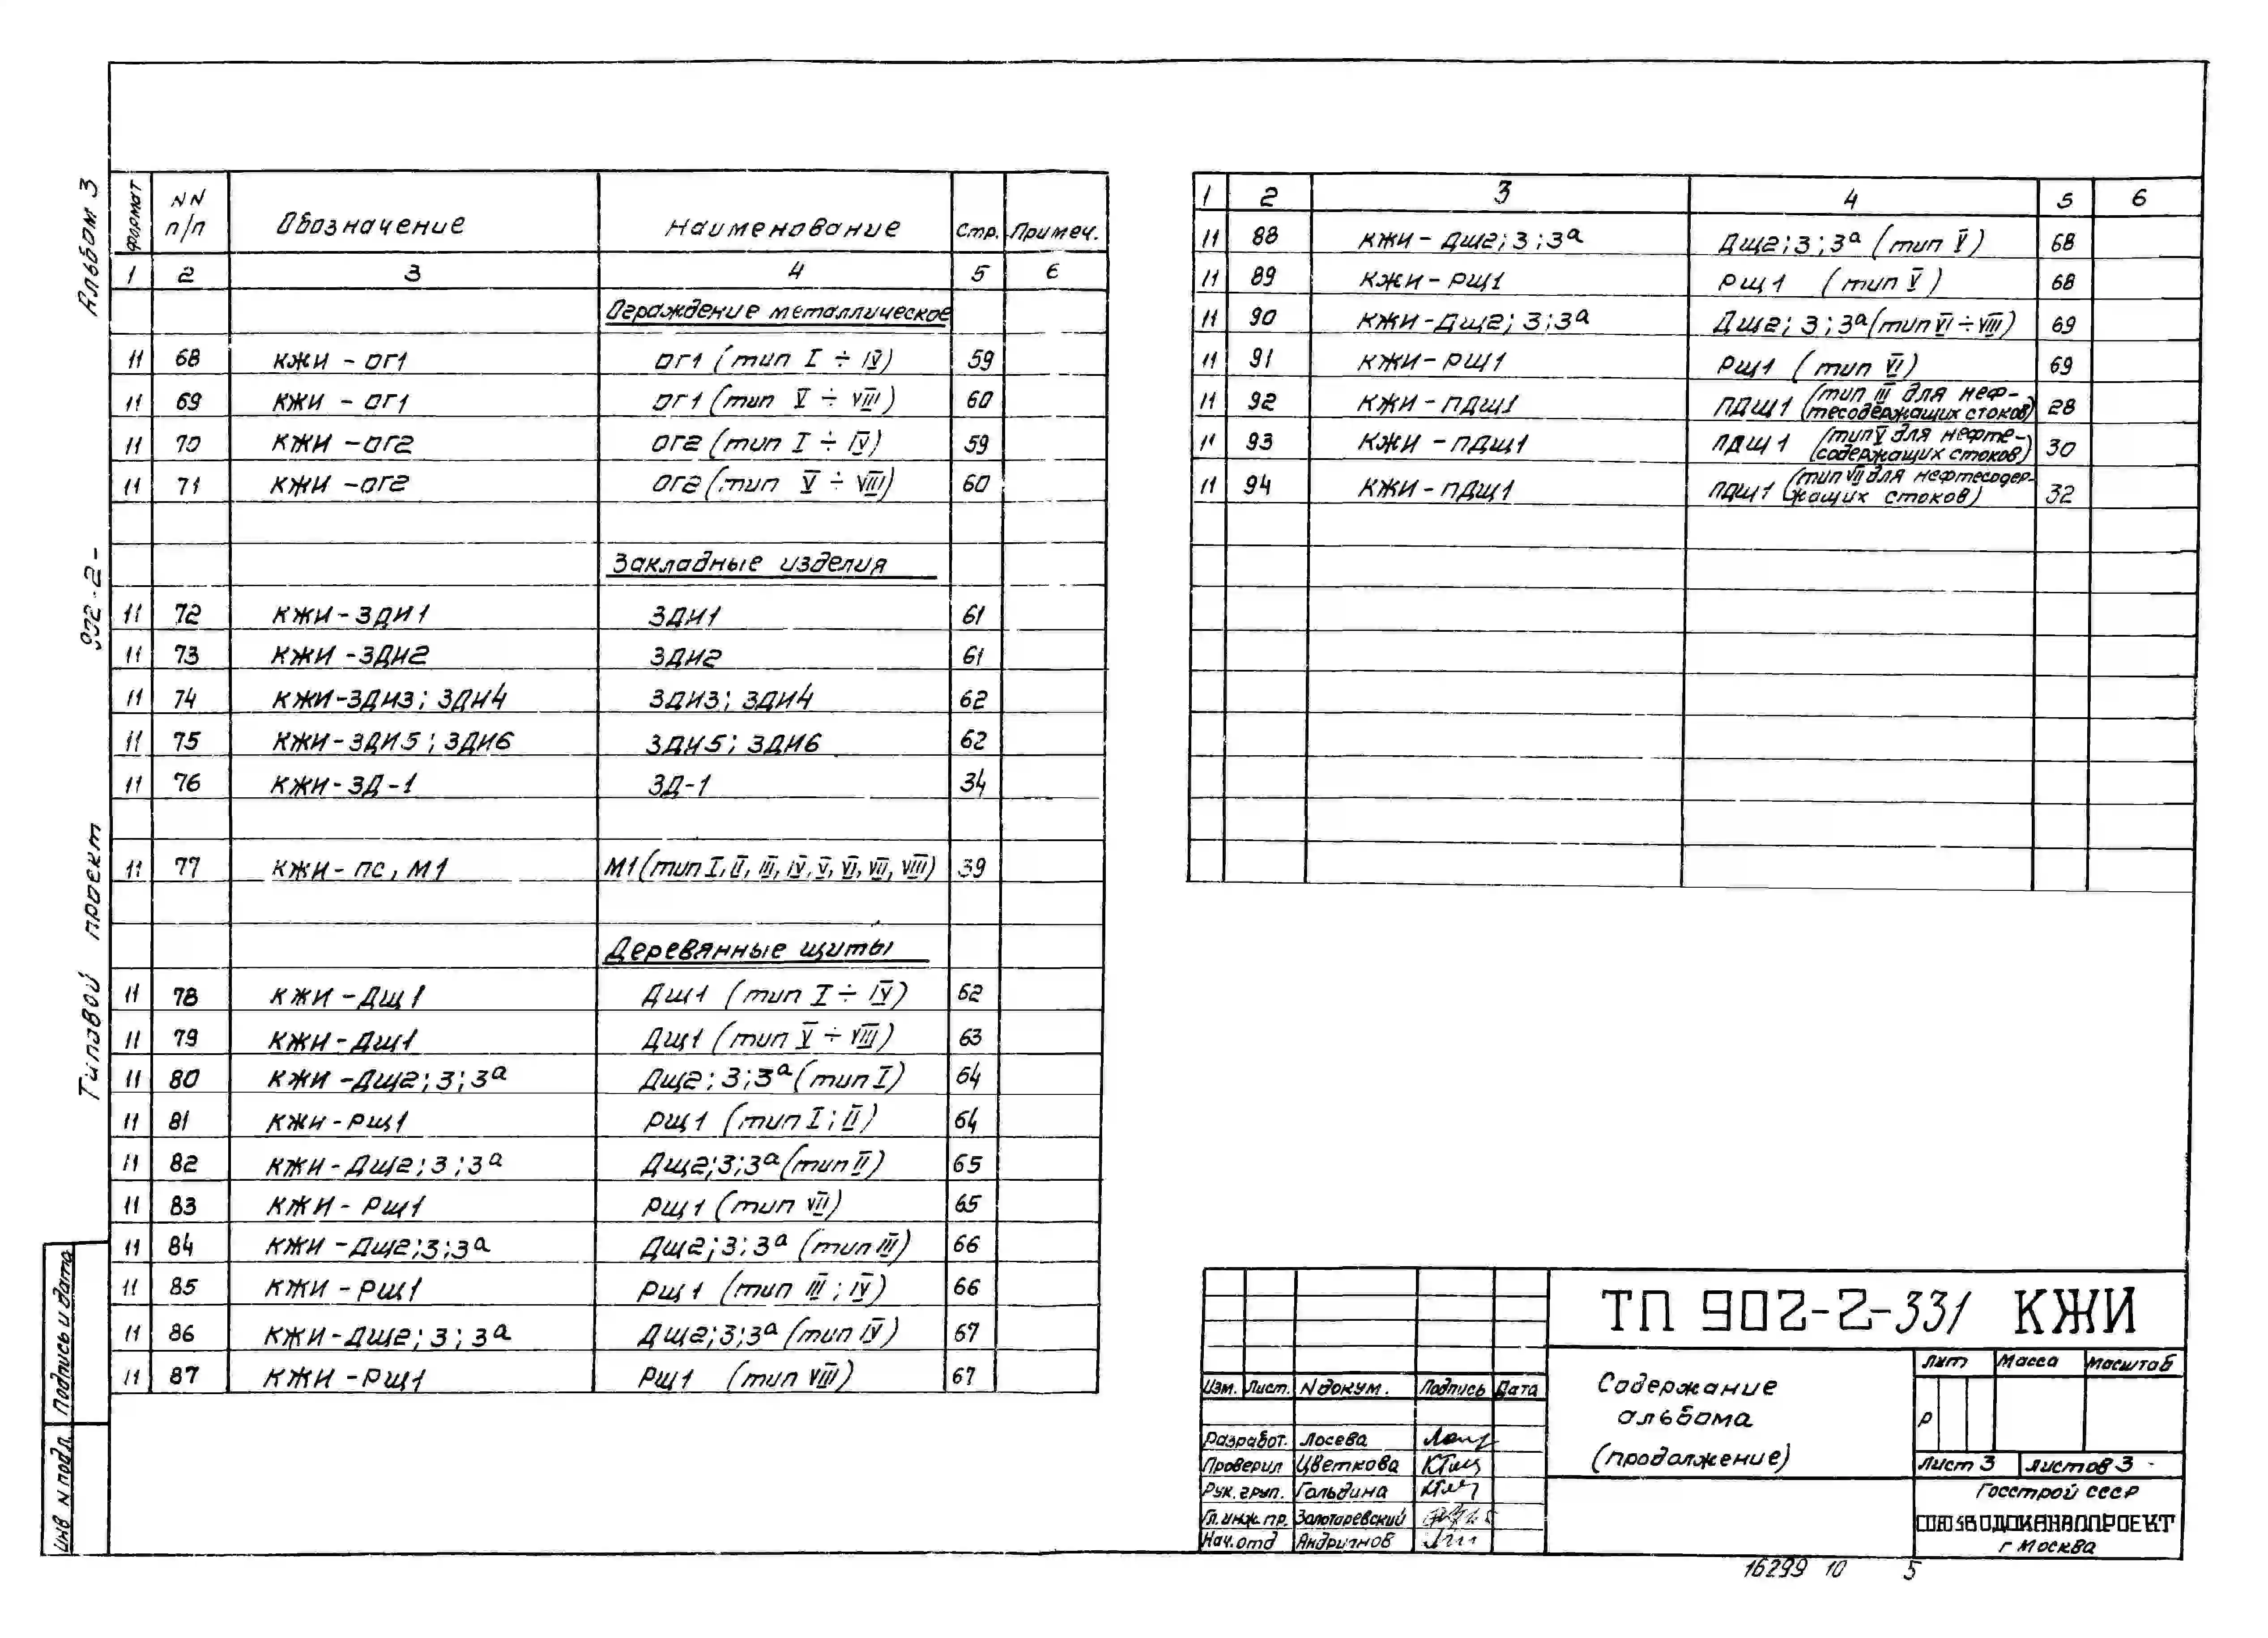 Альбом 3
902-2-
Типовой проект
Подпись и дата
Инв. N подл.
Формат | NN п/п | Обозначение | Наименование | Стр. | Примеч.
1 | 2 | 3 | 4 | 5 | 6
Ограждение металлическое
11 | 68 | КЖИ - ОГ1 | ОГ1 (тип I ÷ IV) | 59
11 | 69 | КЖИ - ОГ1 | ОГ1 (тип V ÷ VIII) | 60
11 | 70 | КЖИ - ОГ2 | ОГ2 (тип I ÷ IV) | 59
11 | 71 | КЖИ - ОГ2 | ОГ2 (тип V ÷ VIII) | 60
Закладные изделия
11 | 72 | КЖИ - ЗДИ1 | ЗДИ1 | 61
11 | 73 | КЖИ - ЗДИ2 | ЗДИ2 | 61
11 | 74 | КЖИ-ЗДИ3; ЗДИ4 | ЗДИ3; ЗДИ4 | 62
11 | 75 | КЖИ-ЗДИ5; ЗДИ6 | ЗДИ5; ЗДИ6 | 62
11 | 76 | КЖИ-ЗД-1 | ЗД-1 | 34
11 | 77 | КЖИ- ПС, М1 | М1 (тип I, II, III, IV, V, VI, VII, VIII) | 39
Деревянные щиты
11 | 78 | КЖИ - ДЩ1 | ДЩ1 (тип I ÷ IV) | 62
11 | 79 | КЖИ - ДЩ1 | ДЩ1 (тип V ÷ VIII) | 63
11 | 80 | КЖИ - ДЩ2; 3; 3а | ДЩ2; 3; 3а (тип I) | 64
11 | 81 | КЖИ - РЩ1 | РЩ1 (тип I; II) | 64
11 | 82 | КЖИ - ДЩ2; 3; 3а | ДЩ2; 3; 3а (тип II) | 65
11 | 83 | КЖИ - РЩ1 | РЩ1 (тип VII) | 65
11 | 84 | КЖИ - ДЩ2; 3; 3а | ДЩ2; 3; 3а (тип III) | 66
11 | 85 | КЖИ - РЩ1 | РЩ1 (тип III; IV) | 66
11 | 86 | КЖИ - ДЩ2; 3; 3а | ДЩ2; 3; 3а (тип IV) | 67
11 | 87 | КЖИ - РЩ1 | РЩ1 (тип VIII) | 67
1 | 2 | 3 | 4 | 5 | 6
11 | 88 | КЖИ - ДЩ2; 3; 3а | ДЩ2; 3; 3а (тип V) | 68
11 | 89 | КЖИ - РЩ1 | РЩ1 (тип V) | 68
11 | 90 | КЖИ - ДЩ2; 3; 3а | ДЩ2; 3; 3а (тип VI ÷ VIII) | 69
11 | 91 | КЖИ - РЩ1 | РЩ1 (тип VI) | 69
11 | 92 | КЖИ - ПДЩ1 | ПДЩ1 (тип III для неф-
тесодержащих стоков) | 28
11 | 93 | КЖИ - ПДЩ1 | ПДЩ1 (тип V для нефте-
содержащих стоков) | 30
11 | 94 | КЖИ - ПДЩ1 | ПДЩ1 (тип VII для нефтесодер-
жащих стоков) | 32
ТП 902-2-331 КЖИ
Содержание
альбома
(продолжение)
Лит | Масса | Масштаб
Р
Лист 3 | Листов 3
Госстрой СССР
СОЮЗВОДОКАНАЛПРОЕКТ
г Москва
Изм. | Лист. | N докум. | Подпись | Дата
Разработ. | Лосева
Проверил | Цветкова
Рук. груп. | Гольдина
Гл. инж. пр. | Золоторевский
Нач. отд | Андрианов
16299 10 5